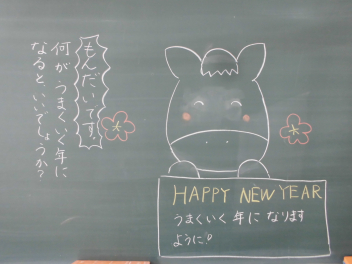 もんだいです。
何がうまくいく年に
なるといいでしょうか?
HAPPY NEW YEAR
うまくいく年になります
ように。